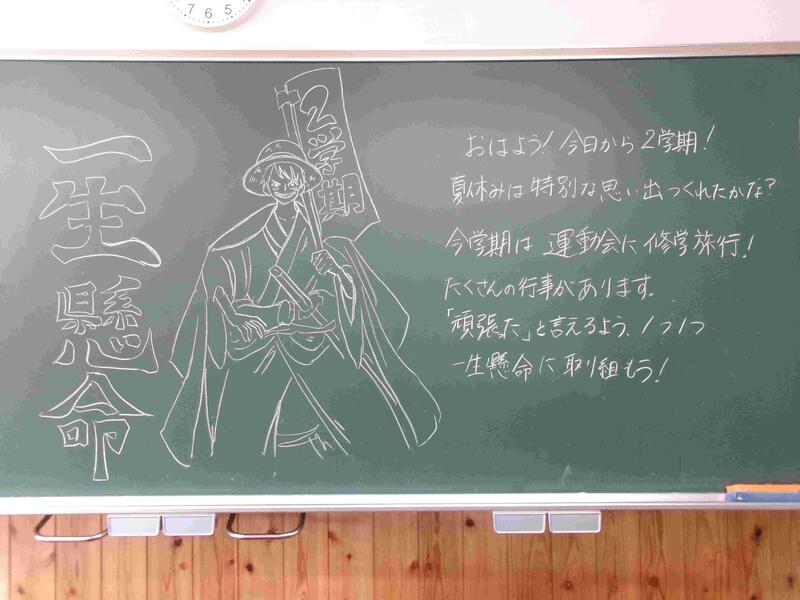 7 6 5
一生懸命
2学期
おはよう!今日から2学期!
夏休みは特別な思い出つくれたかな?
今学期は運動会に修学旅行!
たくさんの行事があります。
「頑張った」と言えるよう、1つ1つ
一生懸命に取り組もう!